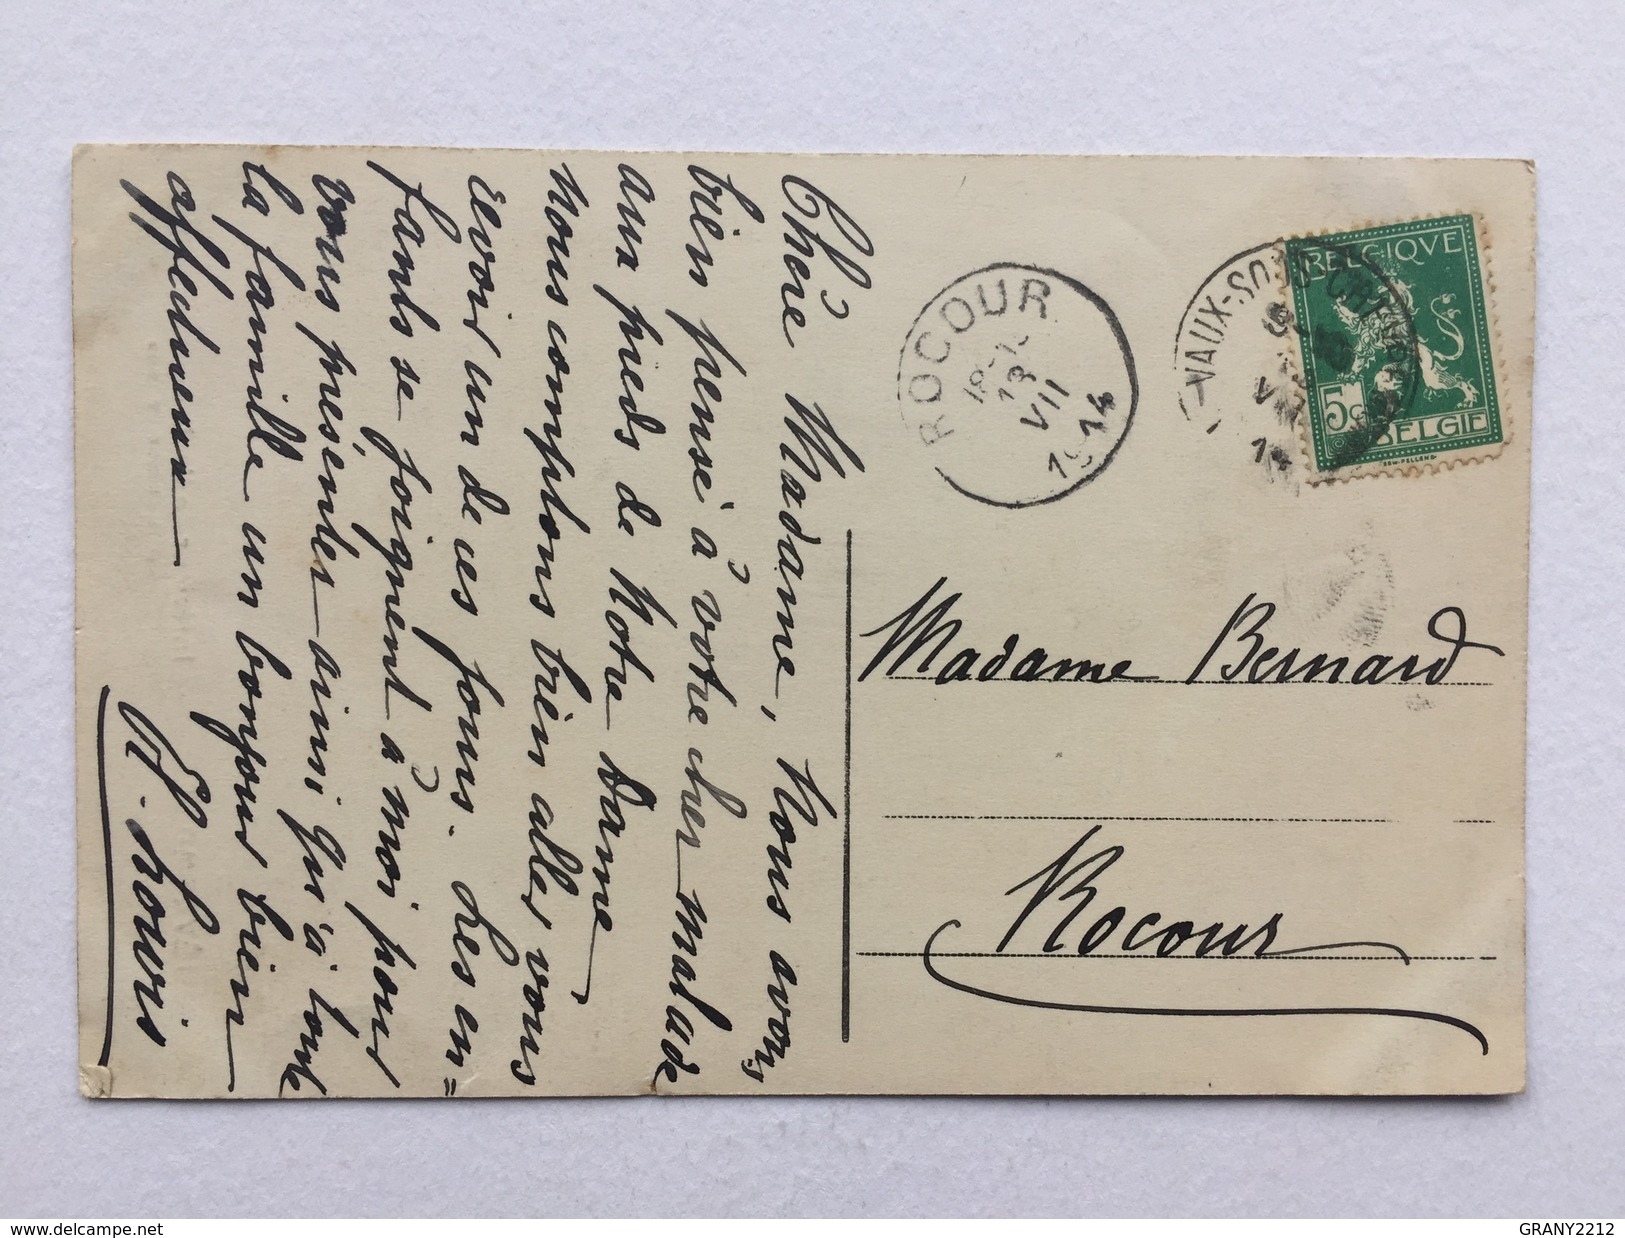 Chère Madame, Nous avons
bien pensé à votre cher malade
aux pieds de Notre Dame
Nous comptons bien aller vous
revoir un de ces jours. Les en=
fants se joignent à moi pour
vous présenter ainsi qu'à toute
la famille un bonjour bien
affectueux
H. Louis
ROCOUR
18
VII
1914
VAUX-SOUS-CHÈVREMONT
BELGIQVE
5c
BELGIË
Madame Bernard
Rocour
GRANY2212